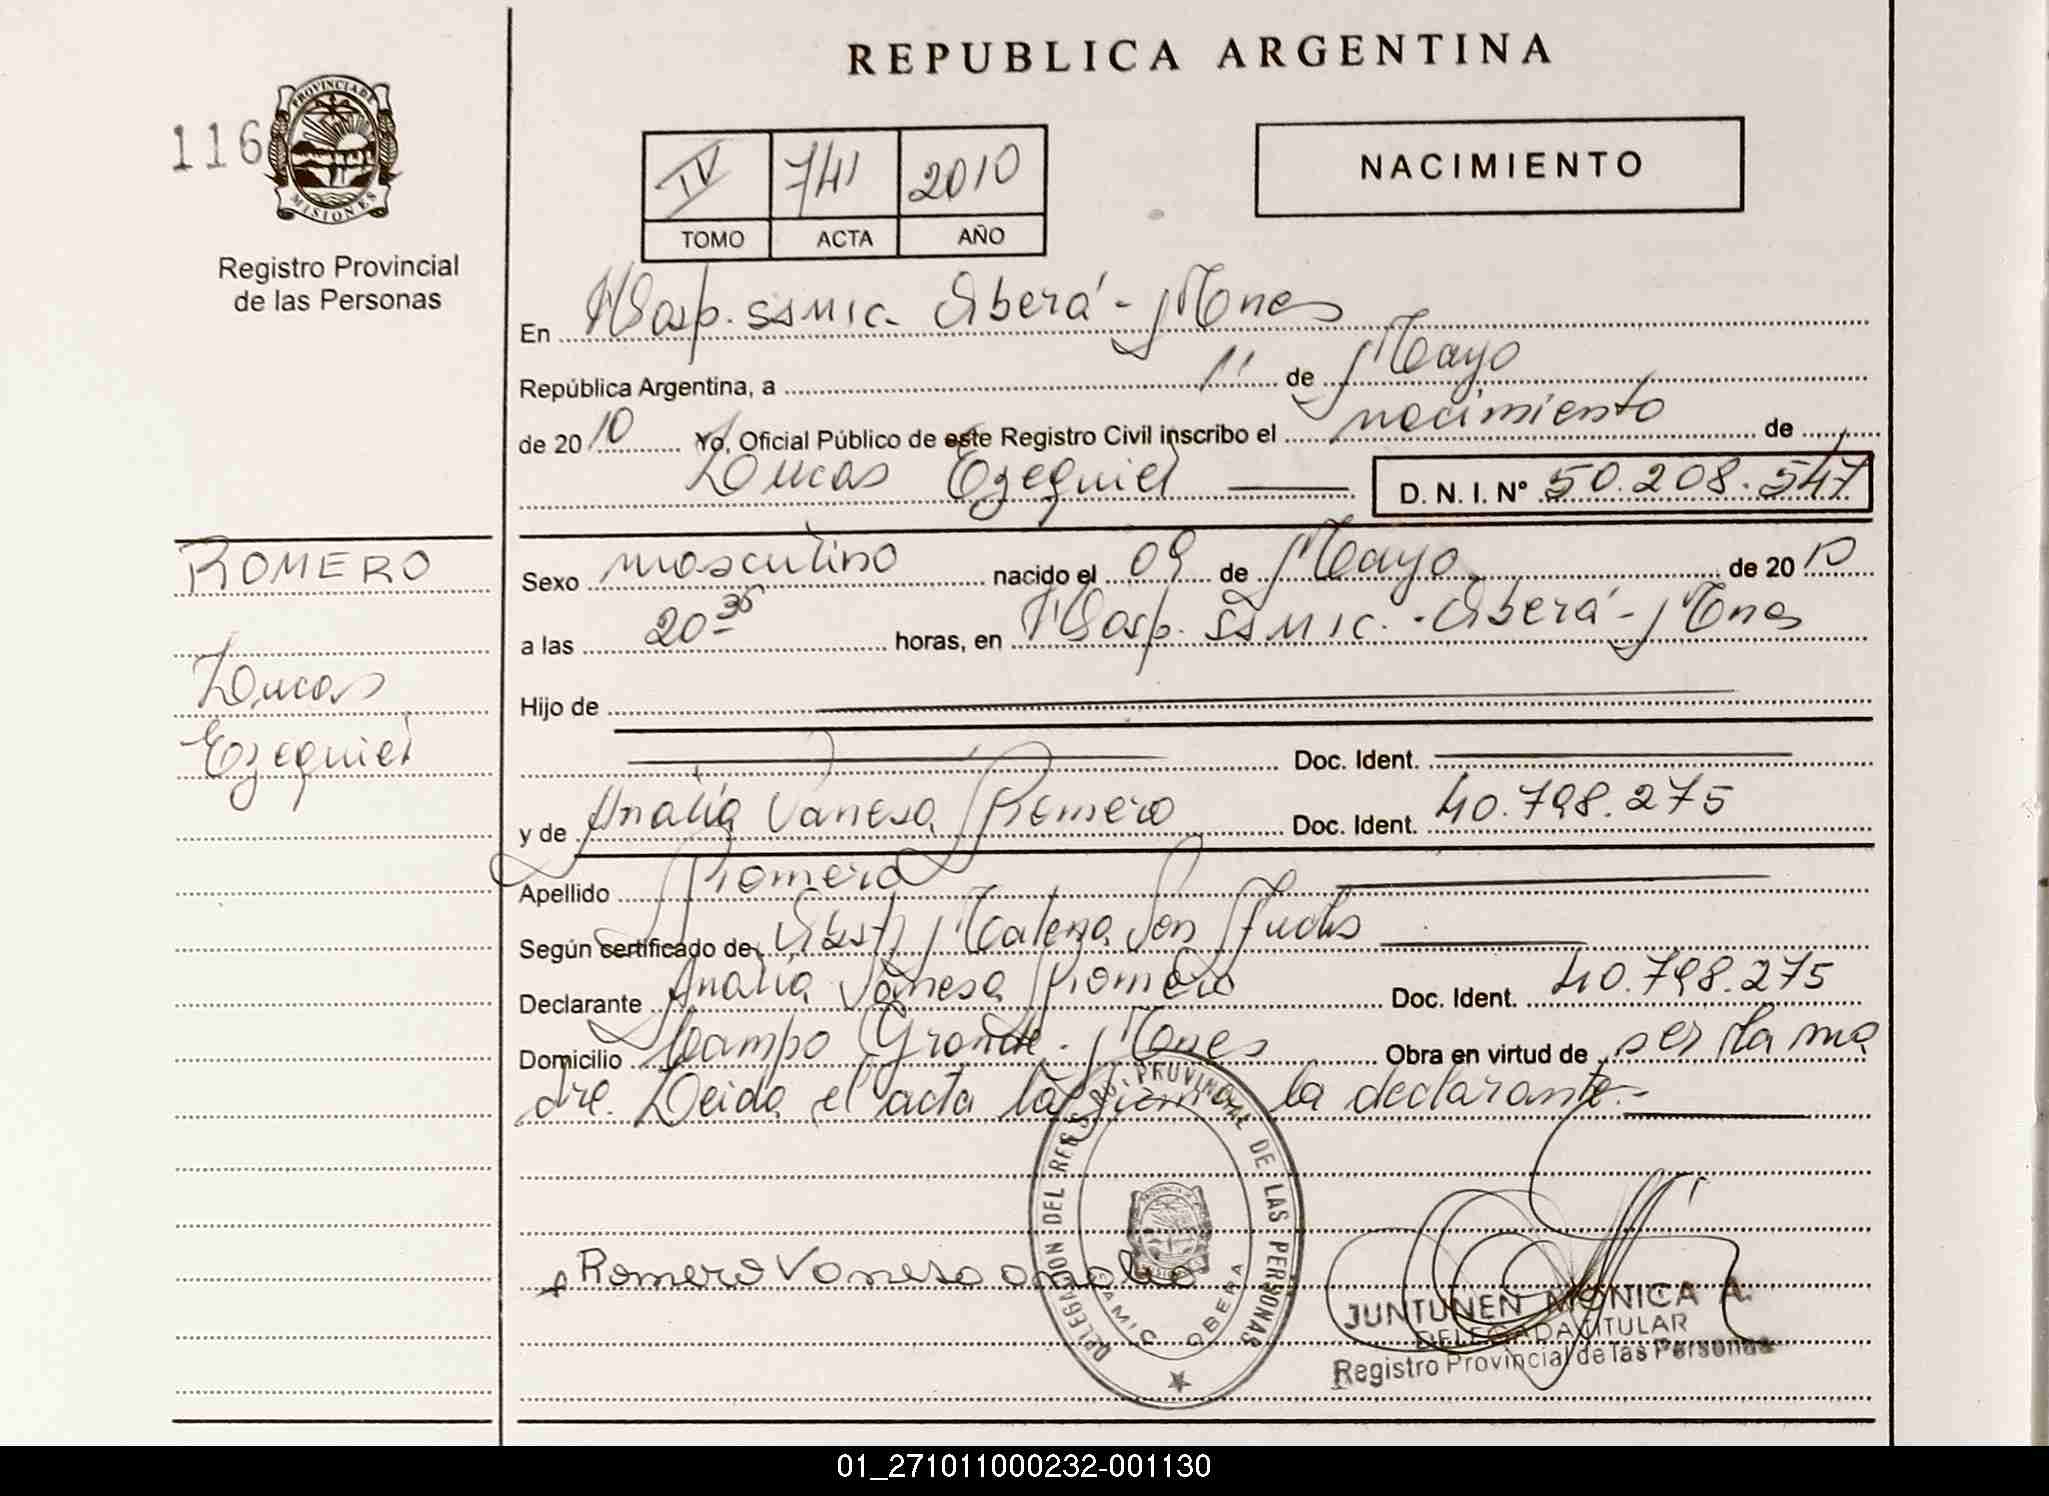 REPUBLICA ARGENTINA
116
PROVINCIA DE
MISIONES
Registro Provincial
de las Personas
IV 741 2010
TOMO ACTA AÑO
NACIMIENTO
En Hosp. SSMIC. Oberá - Mnes
República Argentina, a 11 de Mayo
de 2010 Yo, Oficial Público de este Registro Civil inscribo el nacimiento de
Lucas Ezequiel D. N. I. Nº 50.208.547
ROMERO
Lucas
Ezequiel
Sexo masculino nacido el 09 de Mayo de 2010
a las 20 35 horas, en Hosp. SSMIC. - Oberá - Mnes
Hijo de
Doc. Ident.
y de Analía Vanesa Romero Doc. Ident. 40.798.275
Apellido Romero
Según certificado de Obst. Malena Von
Declarante Analía Vanesa Romero Doc. Ident. 40.798.275
Domicilio Campo Grande - Mnes Obra en virtud de ser la ma
dre. Leida el acta la firma la declarante.-
DELEGACION DEL REGISTRO PROVINCIAL DE LAS PERSONAS
SAMIC OBERA
Romero Vanesa analia
JUNTUNEN MONICA A.
DELEGADA TITULAR
Registro Provincial de las Personas
01_271011000232-001130